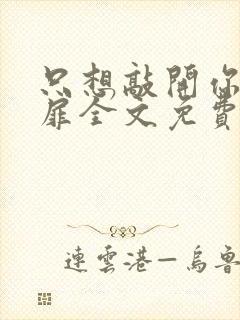 只想敲開你
扉全文免費
連雲港—烏魯